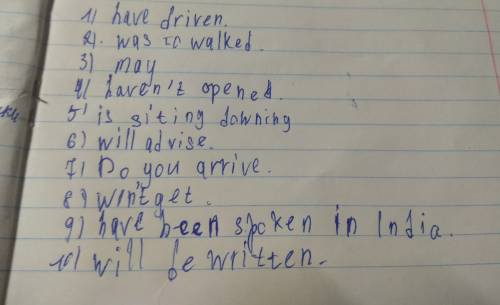 1) have driven.
2). was to walked.
3) may
4) haven't opened.
5) is siting downing
6) will advise.
7) Do you arrive.
8) won't get.
9) have been spoken in India.
10) will be written.